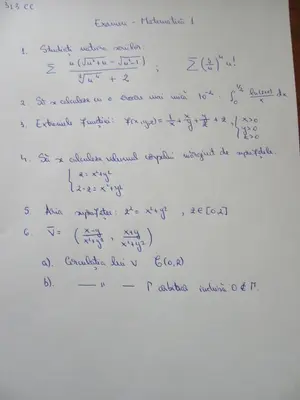 313 CC
Examen - Matematică 1
1. Studiați natura seriilor.
∑ n(√(n²+n) - √(n²-1)) / (√n² + 2) ; ∑ (3/n)ⁿ n!
2. Să se calculeze cu o eroare mai mică 10⁻⁶ ∫₀^(1/2) dx
3. Extremele funcției: f(x,y,z) = 1/x + x/y + y/z + z, { x>0 y>0 z>0
4. Să se calculeze volumul corpului mărginit de suprafețele
{ z = x²+y²
2-z = x²+y²
5. Aria suprafeței: z² = x²+y² , z∈[0,2]
6. V̄ = ( (x-y)/(x²+y²) , (x+y)/(x²+y²) )
a). Circulația lui V C(0,2)
b). —— 〃 —— Γ arbitrară închisă 0 ∉ Γ.